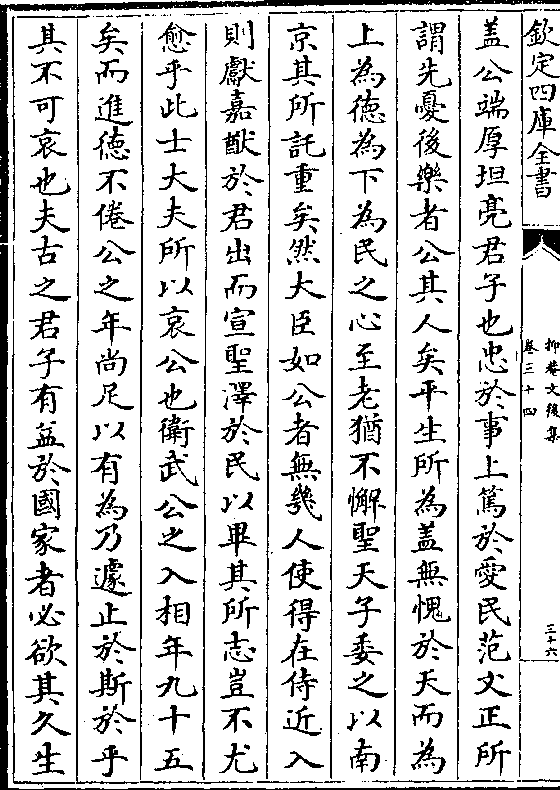 欽定四庫全書
抑菴文後集
卷三十四
三十六
盖公端厚坦亮君子也忠於事上篤於愛民范文正所
謂先憂後樂者公其人矣平生所為盖無愧於天而為
上為德為下為民之心至老猶不懈聖天子委之以南
京其所託重矣然大臣如公者無幾人使得在侍近入
則獻嘉猷於君出而宣聖澤於民以畢其所志豈不尤
愈乎此士大夫所以哀公也衛武公之入相年九十五
矣而進德不倦公之年尚足以有為乃遽止於斯於乎
其不可哀也夫古之君子有益於國家者必欲其久生